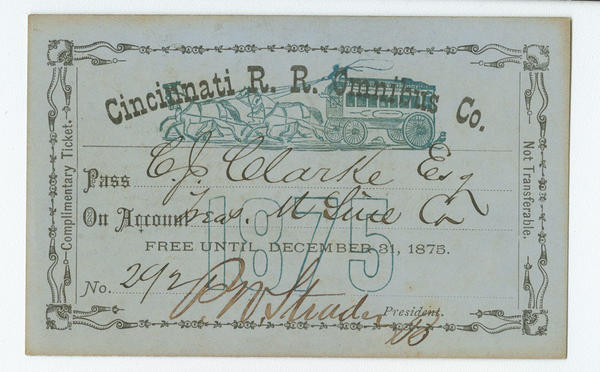 Cincinnati R. R. Omnibus Co.
Complimentary Ticket.
Pass C. J. Clarke Esq
On Account Treas. M Line Co
1875
FREE UNTIL DECEMBER 31, 1875.
No. 292 P W Strader
President.
Not Transferable.